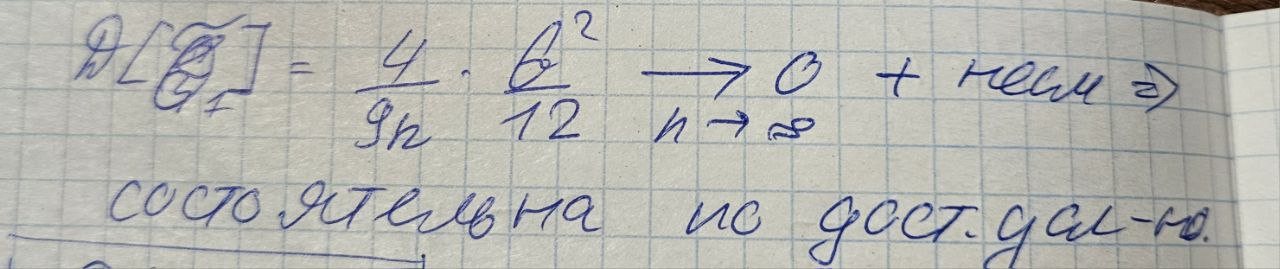 D[θ̃₁] = 4/9n · θ²/12 → 0 + несм ⇒
n → ∞
состоятельна по дост. усл-ю.